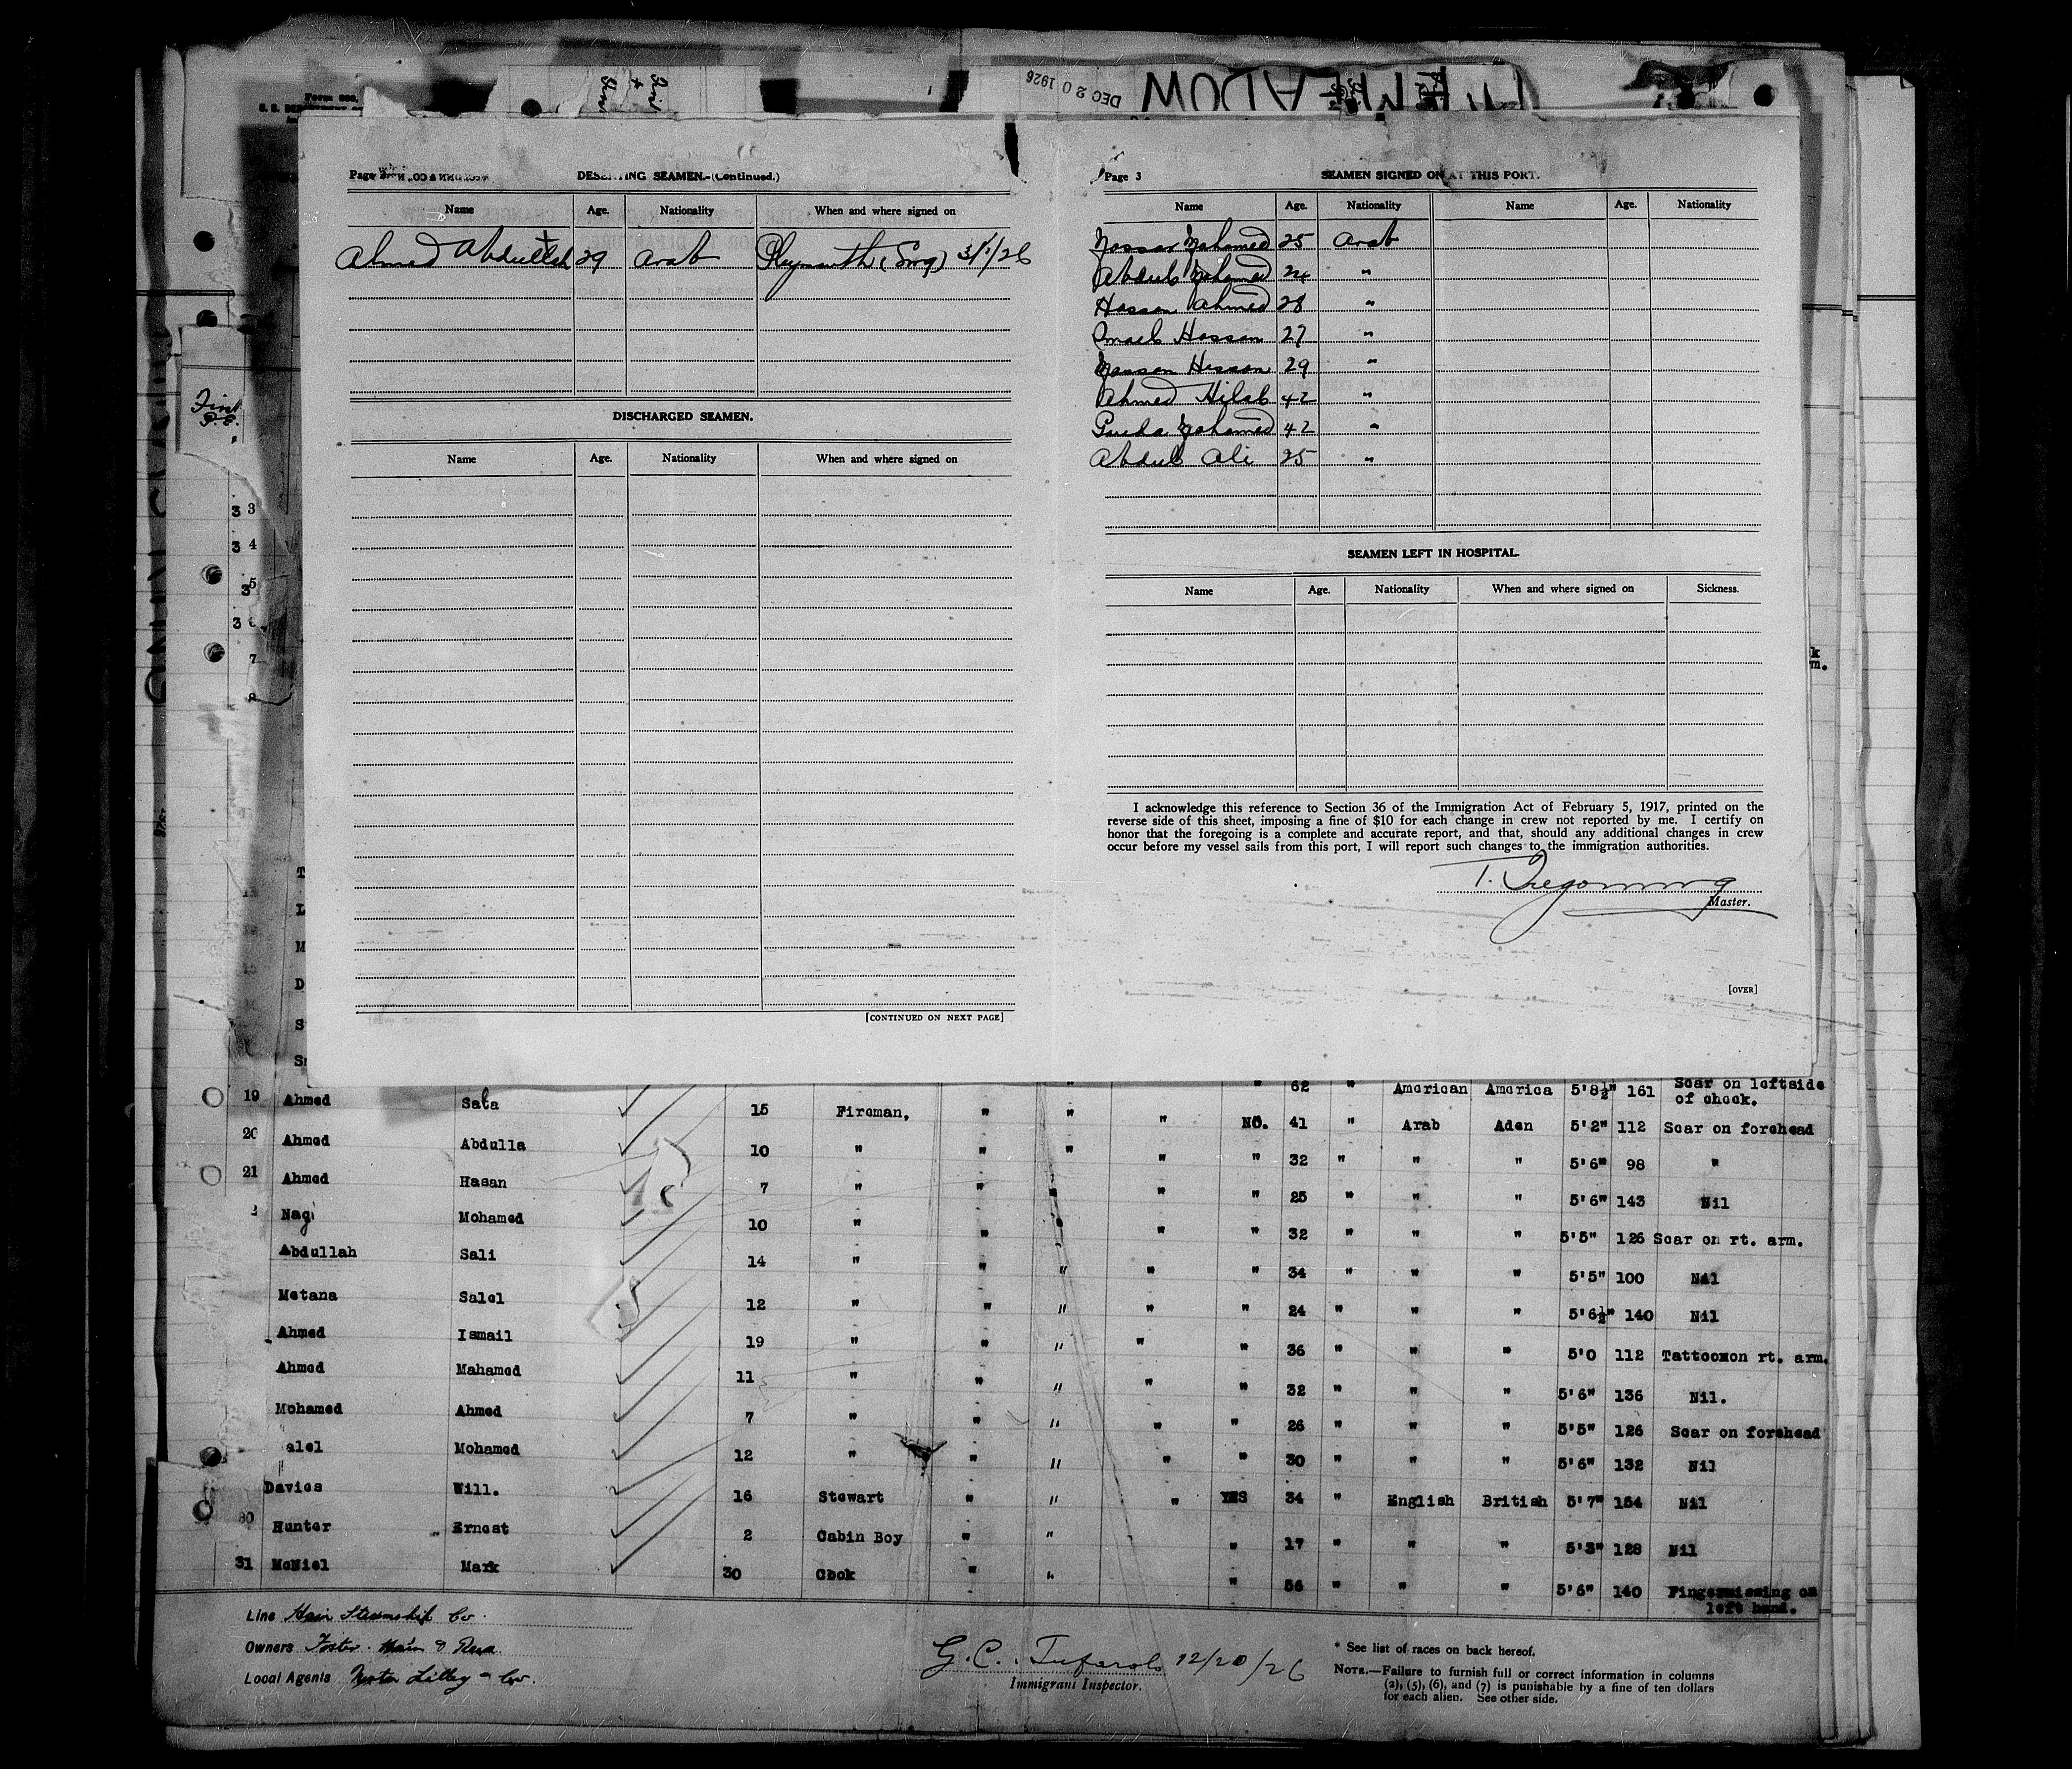 DEC 20 1926
Form 680,
Page
DESERTING SEAMEN.-(Continued.)
Name Age. Nationality When and where signed on
Ahmed Abdullah 29 Arab Plymouth (Eng) 3/1/26
DISCHARGED SEAMEN.
Name Age. Nationality When and where signed on
[CONTINUED ON NEXT PAGE]
Page 3
SEAMEN SIGNED ON AT THIS PORT.
Name Age. Nationality Name Age. Nationality
Mohamed 25 Arab
Abdul Mohamed 24 "
Hassan Ahmed 28 "
Hassan 27 "
Hassan 29 "
Ahmed Hilab 42 "
Mohamed 42 "
Abdul Ali 25 "
SEAMEN LEFT IN HOSPITAL.
Name Age. Nationality When and where signed on Sickness.
I acknowledge this reference to Section 36 of the Immigration Act of February 5, 1917, printed on the
reverse side of this sheet, imposing a fine of $10 for each change in crew not reported by me. I certify on
honor that the foregoing is a complete and accurate report, and that, should any additional changes in crew
occur before my vessel sails from this port, I will report such changes to the immigration authorities.
Master.
[OVER]
First
3 3
3 4
35
3 6
7
8
" " 62 " American America 5'8½" 161 Scar on leftside
of cheek.
19 Ahmed Sala 15 Fireman, " " " NO. 41 " Arab Aden 5'2" 112 Scar on forehead
20 Ahmed Abdulla 10 " " " " " 32 " " " 5'6" 98 "
21 Ahmed Hasan 7 " " " " " 25 " " " 5'6" 143 Nil
Nagi Mohamed 10 " " " " " 32 " " " 5'5" 126 Scar on rt. arm.
Abdullah Sali 14 " " " " " 34 " " " 5'5" 100 Nil
Metana Salel 12 " " " " " 24 " " " 5'6½" 140 Nil
Ahmed Ismail 19 " " " " " 36 " " " 5'0 112 Tattooxon rt. arm.
Ahmed Mahamed 11 " " " " " 32 " " " 5'6" 136 Nil.
Mohamed Ahmed 7 " " " " " 26 " " " 5'5" 126 Scar on forehead
alel Mohamed 12 " " " " " 30 " " " 5'6" 132 Nil
Davies Will. 16 Stewart " " " YES 34 " English British 5'7" 154 Nil
30 Hunter Ernest 2 Cabin Boy " " " 17 " " " 5'3" 128 Nil
31 McNiel Mark 30 Cook " " " 56 " " " 5'6" 140 Finger missing on
left hand.
Line Hain Steamship Co.
Owners Foster Hain & Read
Local Agents Lilley & Co.
G. C. 12/20/26
Immigrant Inspector.
* See list of races on back hereof.
NOTE.—Failure to furnish full or correct information in columns
(2), (5), (6), and (7) is punishable by a fine of ten dollars
for each alien. See other side.